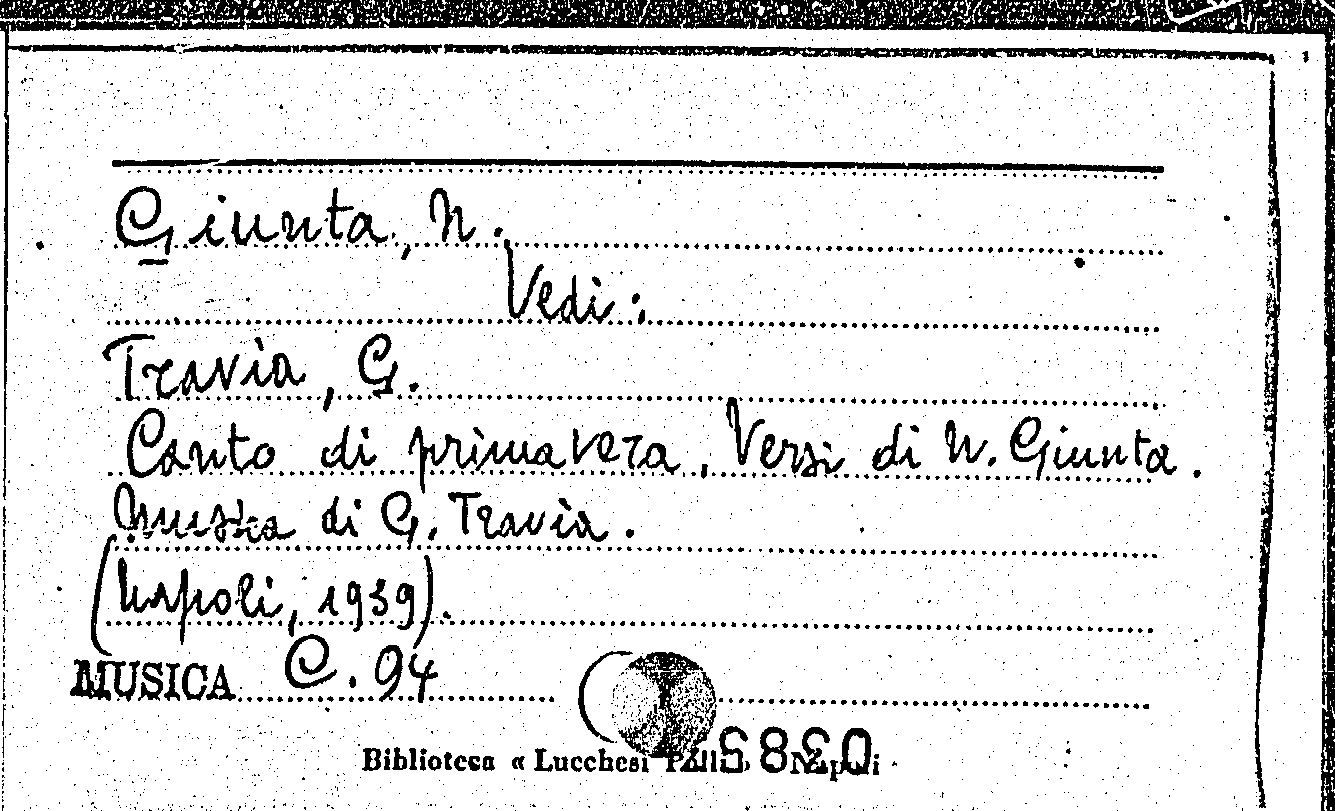 Giunta, N.
Vedi:
Travia, G.
Canto di primavera. Versi di N. Giunta.
Musica di G. Travia.
(Napoli, 1939).
MUSICA C. 94
Biblioteca « Lucchesi Palli Napoli